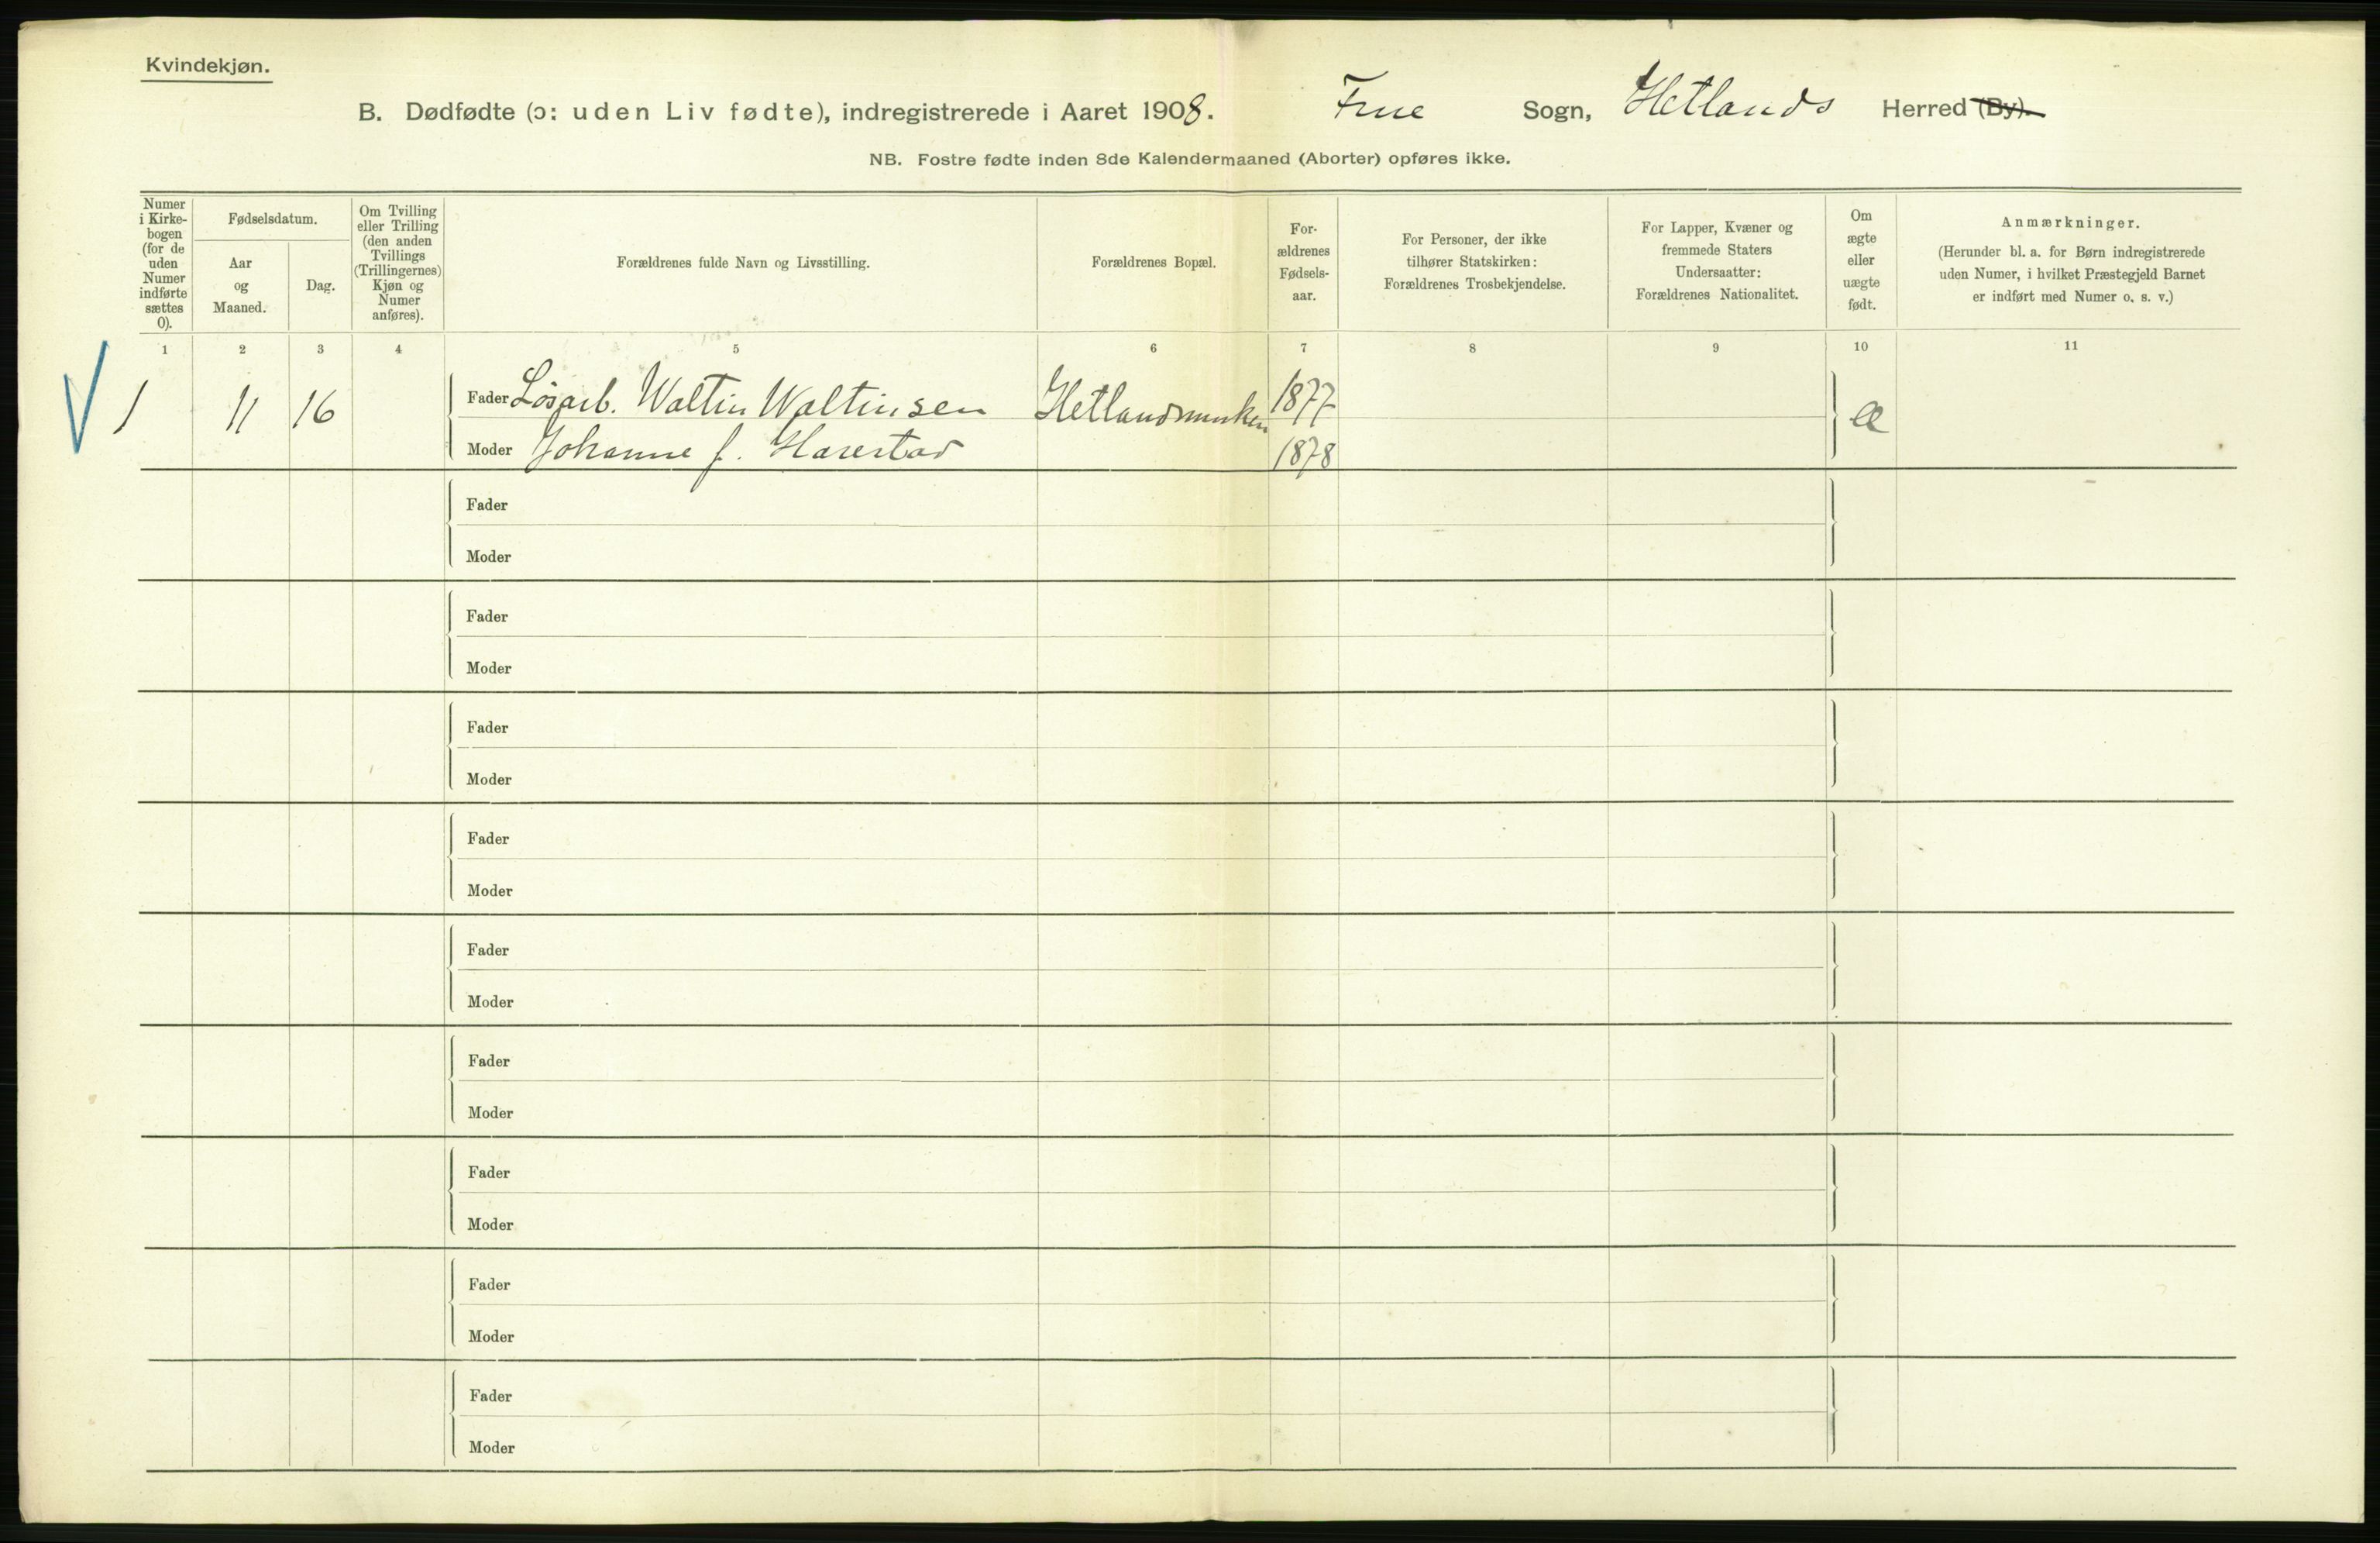 Kvindekjøn.
B. Dødfødte (ɔ: uden Liv fødte), indregistrerede i Aaret 1908. Frue Sogn, Hetlands Herred (By).
NB. Fostre fødte inden 8de Kalendermaaned (Aborter) opføres ikke.
Numer
i Kirke-
bogen
(for de
uden
Numer
indførte
sættes
0).
Fødselsdatum.
Aar
og
Maaned.
Dag.
Om Tvilling
eller Trilling
(den anden
Tvillings
(Trillingernes)
Kjøn og
Numer
anføres).
Forældrenes fulde Navn og Livsstilling.
Forældrenes Bopæl.
For-
ældrenes
Fødsels-
aar.
For Personer, der ikke
tilhører Statskirken:
Forældrenes Trosbekjendelse.
For Lapper, Kvæner og
fremmede Staters
Undersaatter:
Forældrenes Nationalitet.
Om
ægte
eller
uægte
født.
Anmærkninger.
(Herunder bl. a. for Børn indregistrerede
uden Numer, i hvilket Præstegjeld Barnet
er indført med Numer o. s. v.)
1 2 3 4 5 6 7 8 9 10 11
1 11 16 Fader Løsarb. Waltin Waltinsen Hetlandsmarken 1877 Æ
Moder Johanne f. Harestad 1878
Fader
Moder
Fader
Moder
Fader
Moder
Fader
Moder
Fader
Moder
Fader
Moder
Fader
Moder
Fader
Moder
Fader
Moder